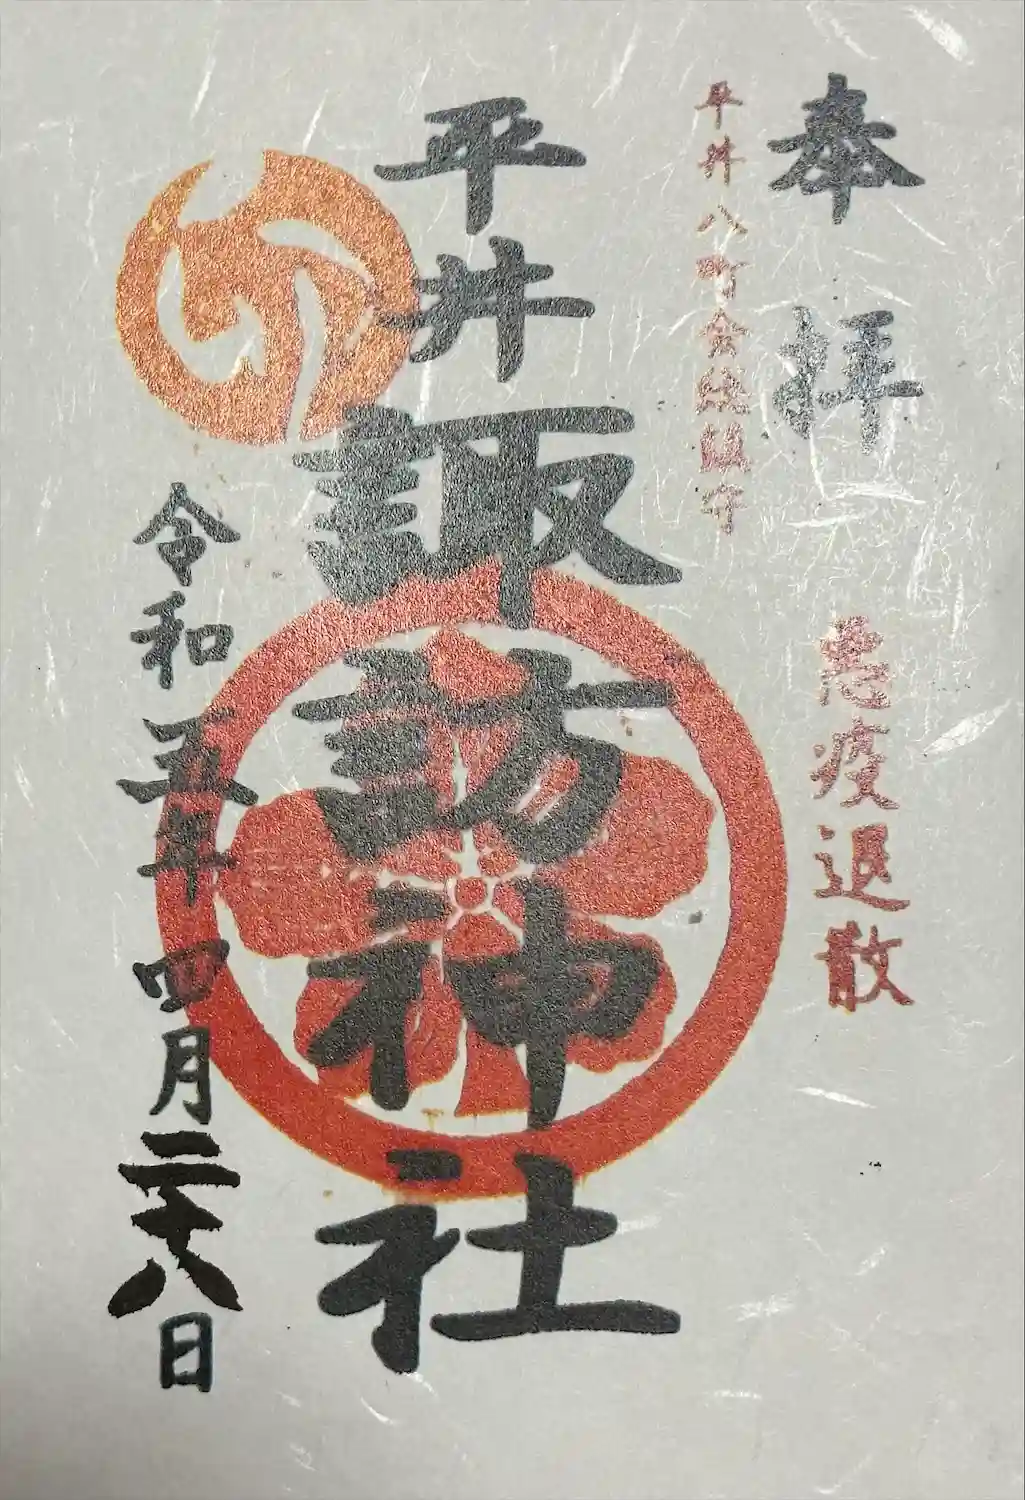 奉拝
平井八町会総鎮守
悪疫退散
平井諏訪神社
令和五年四月二十八日